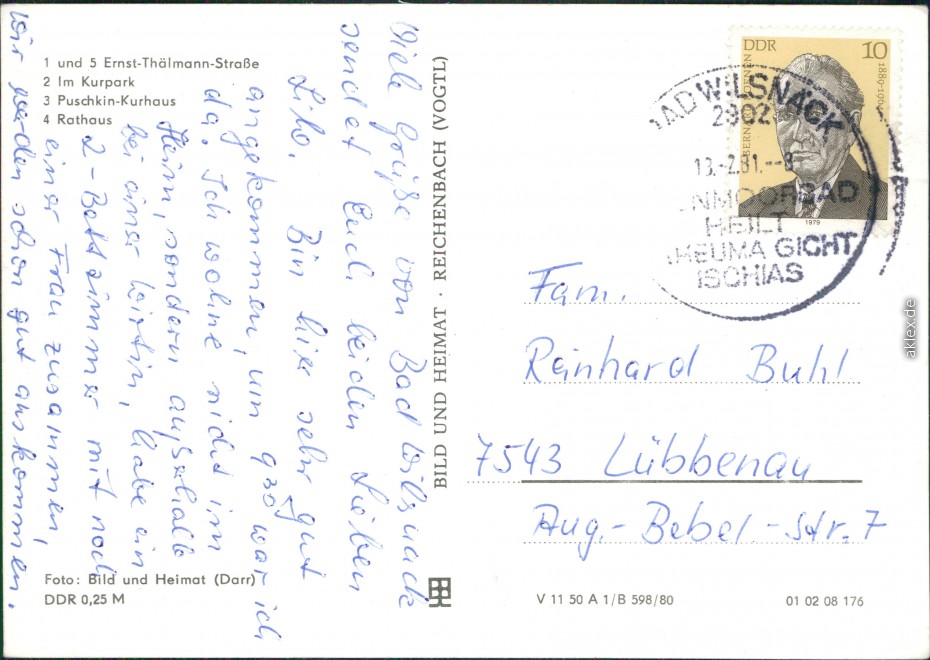 1 und 5 Ernst-Thälmann-Straße
2 Im Kurpark
3 Puschkin-Kurhaus
4 Rathaus
Viele Grüße von Bad Wilsnack
sendet Euch beiden Lieben
Bin hier sehr gut
angekommen, um 9 30 war ich
da. Ich wohne nicht im
Heim, sondern außerhalb
bei einer Wirtin, habe ein
2-Bettzimmer mit noch
einer Frau zusammen,
wir werden schon gut auskommen.
Foto: Bild und Heimat (Darr)
DDR 0,25 M
BILD UND HEIMAT · REICHENBACH (VOGTL)
DDR 10
1979
BAD WILSNACK
2902
13.-2.81.--8
HEILT
RHEUMA GICHT
ISCHIAS
Fam.
Reinhard Buhl
7543 Lübbenau
Aug.-Bebel-Str. 7
V 11 50 A 1/B 598/80
01 02 08 176
aklex.de